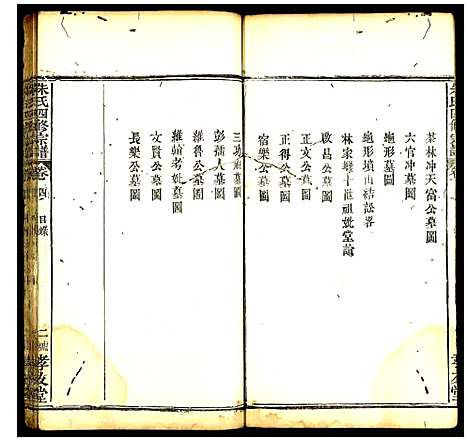 茶林冲天富公墓圖
六官墓圖
龜形墓圖
龜形墳山結訟畧
林家塅十世祖妣堂諭
啟昌公墓圖
正文公墓圖
正得公墓圖
宿樂公墓圖
三
墓圖
彭孺人墓圖
維魯公墓圖
維翰考妣墓圖
文賢公墓圖
長樂公墓圖
朱氏四修宗譜
卷四
目錄
二
孝友堂